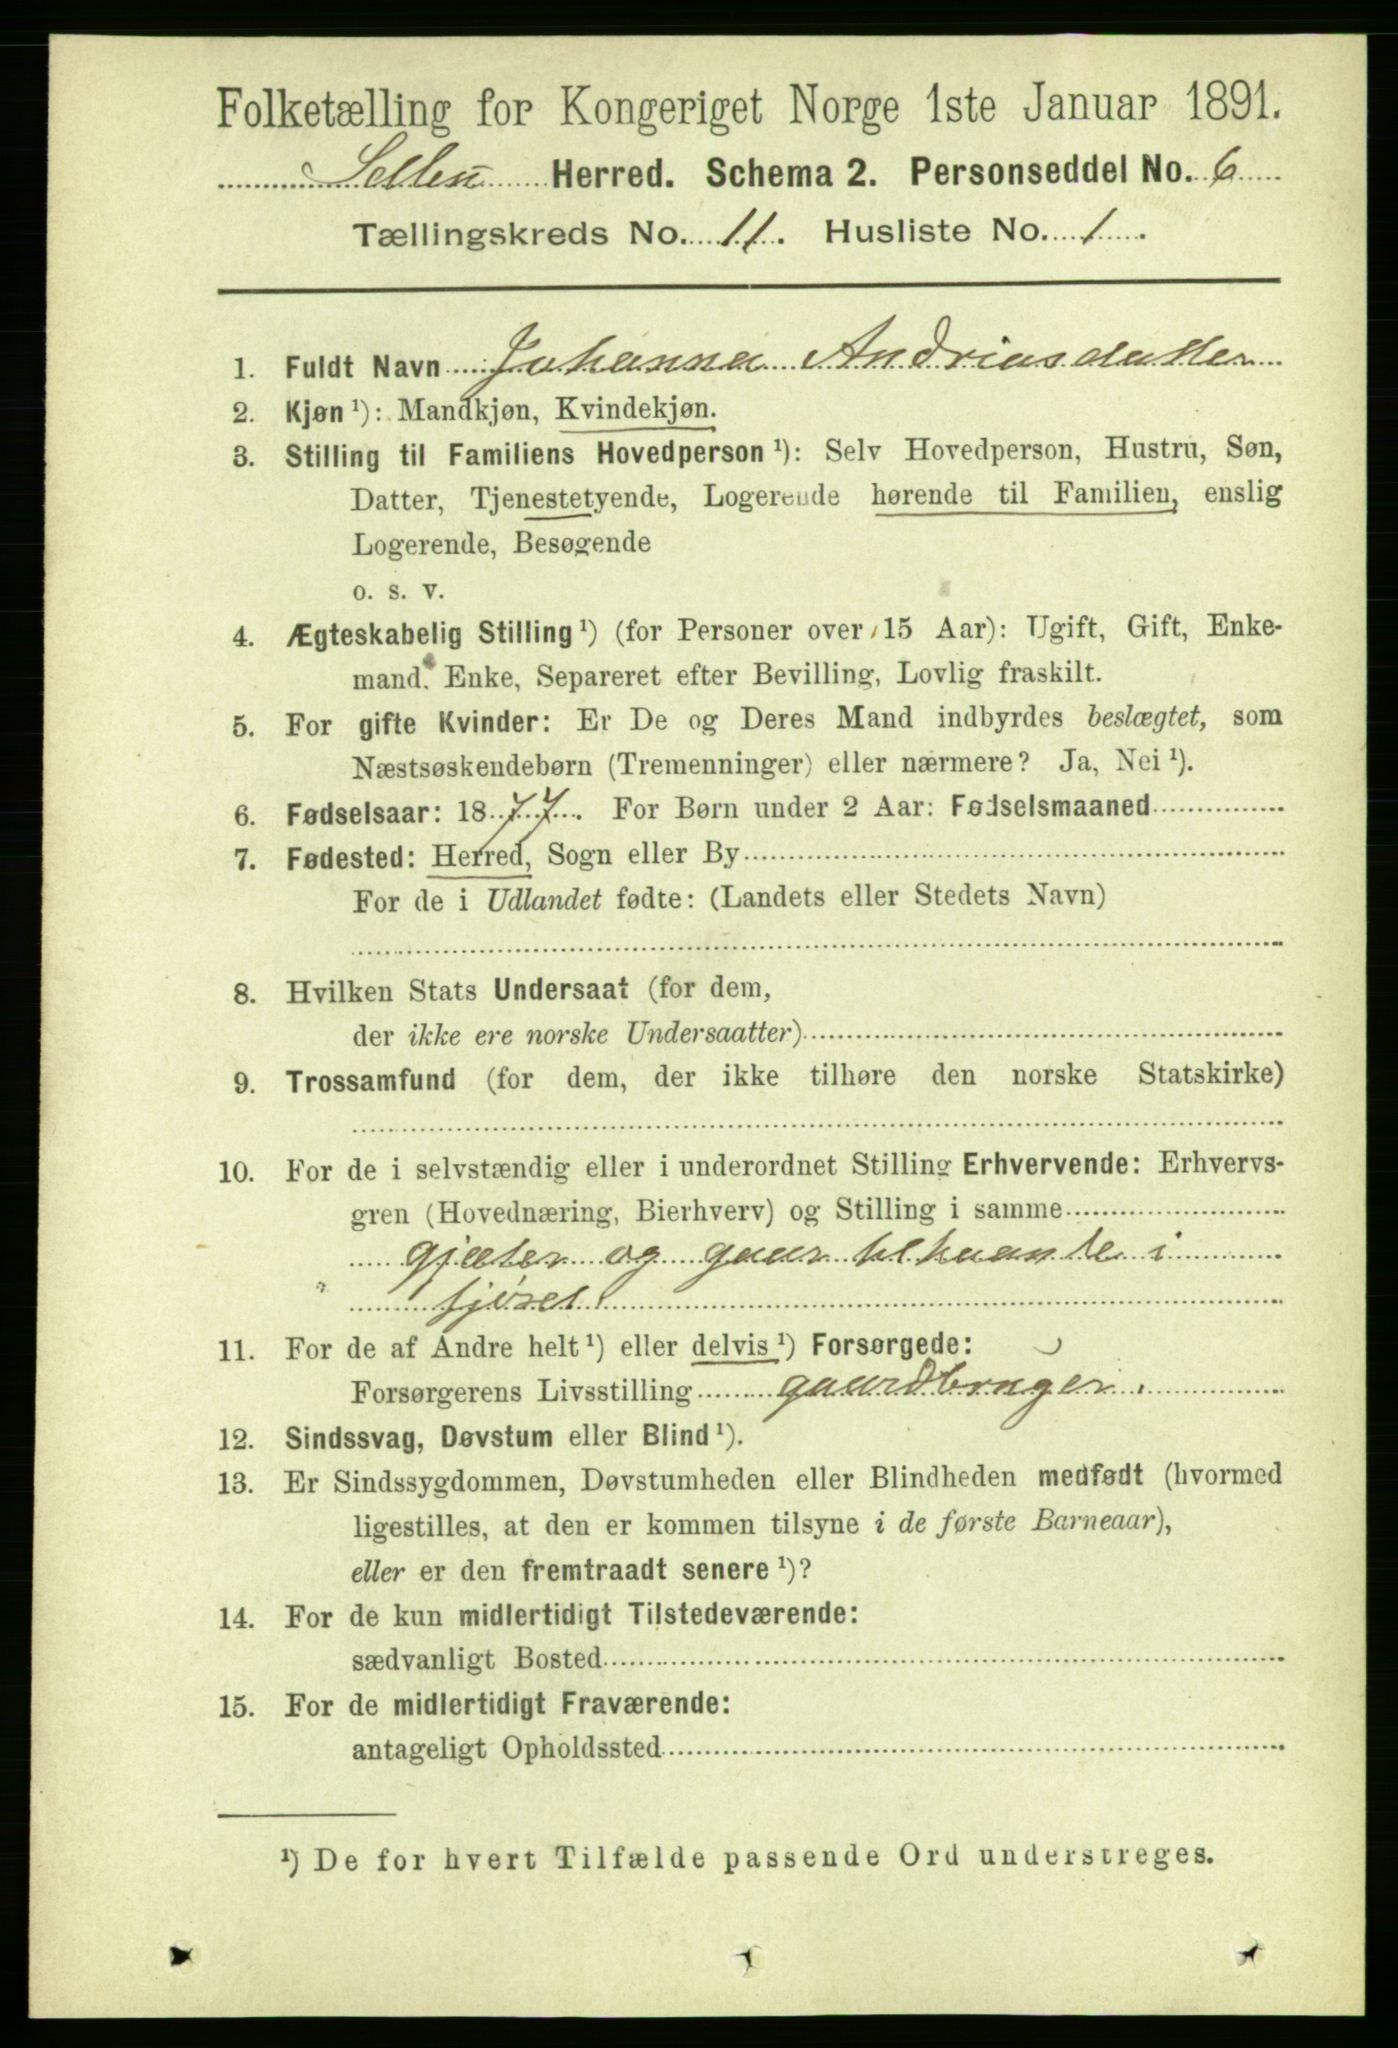 Folketælling for Kongeriget Norge 1ste Januar 1891.
Selbu Herred. Schema 2. Personseddel No. 6
Tællingskreds No. 11. Husliste No. 1.
1. Fuldt Navn Johanna Andriasdatter
2. Kjøn ¹): Mandkjøn, Kvindekjøn.
3. Stilling til Familiens Hovedperson ¹): Selv Hovedperson, Hustru, Søn,
Datter, Tjenestetyende, Logerende hørende til Familien, enslig
Logerende, Besøgende
o. s. v.
4. Ægteskabelig Stilling ¹) (for Personer over 15 Aar): Ugift, Gift, Enke-
mand. Enke, Separeret efter Bevilling, Lovlig fraskilt.
5. For gifte Kvinder: Er De og Deres Mand indbyrdes beslægtet, som
Næstsøskendebørn (Tremenninger) eller nærmere? Ja, Nei ¹).
6. Fødselsaar: 1877. For Børn under 2 Aar: Fødselsmaaned
7. Fødested: Herred, Sogn eller By
For de i Udlandet fødte: (Landets eller Stedets Navn)
8. Hvilken Stats Undersaat (for dem,
der ikke ere norske Undersaatter)
9. Trossamfund (for dem, der ikke tilhøre den norske Statskirke)
10. For de i selvstændig eller i underordnet Stilling Erhvervende: Erhvervs-
gren (Hovednæring, Bierhverv) og Stilling i samme
gjæter og gaar tilhaande i
fjøset
11. For de af Andre helt ¹) eller delvis ¹) Forsørgede:
Forsørgerens Livsstilling gaardbruger.
12. Sindssvag, Døvstum eller Blind ¹).
13. Er Sindssygdommen, Døvstumheden eller Blindheden medfødt (hvormed
ligestilles, at den er kommen tilsyne i de første Barneaar),
eller er den fremtraadt senere ¹)?
14. For de kun midlertidigt Tilstedeværende:
sædvanligt Bosted
15. For de midlertidigt Fraværende:
antageligt Opholdssted
¹) De for hvert Tilfælde passende Ord understreges.